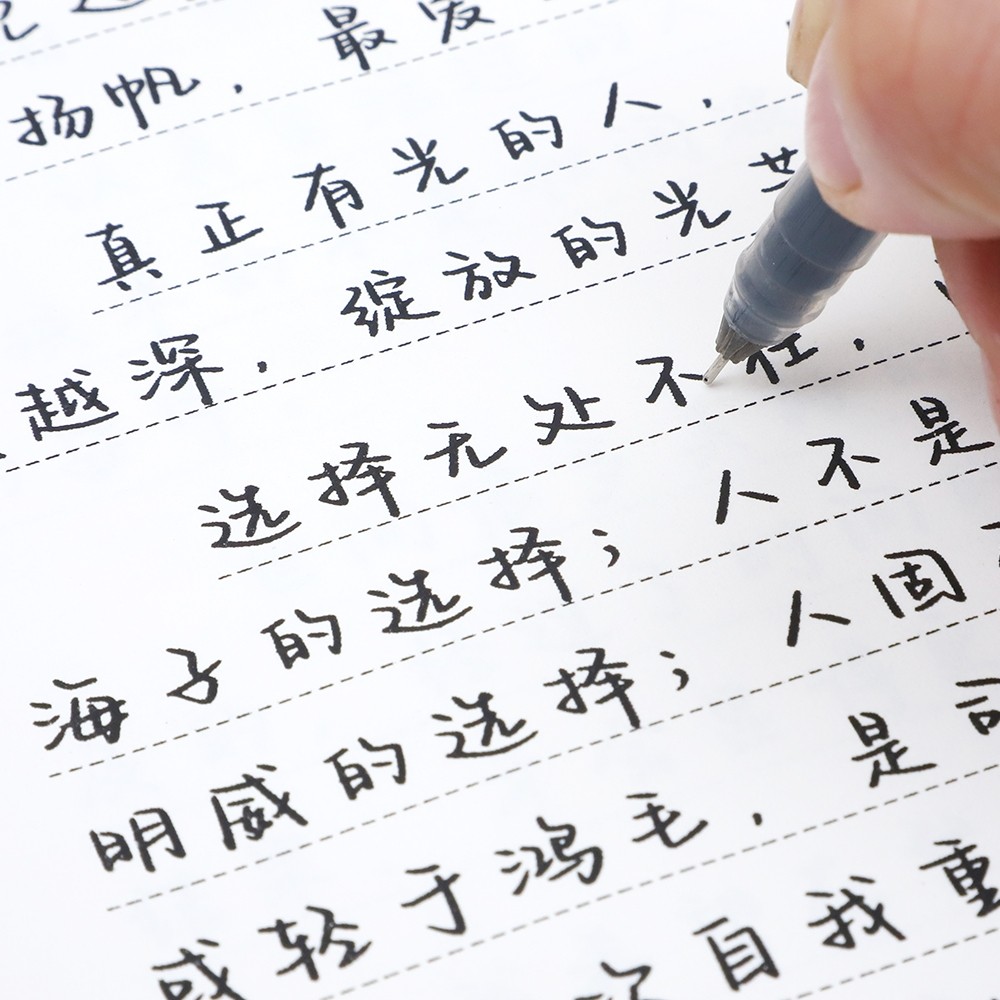 扬帆，最
真正有光的人，
越深，绽放的光芒
选择无处不在，
海子的选择；人不是
明威的选择；人固
或轻于鸿毛，是司
自我重